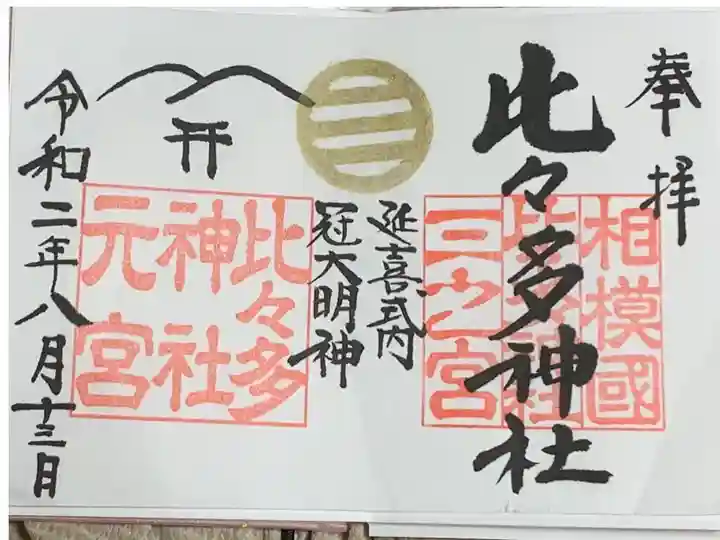 奉拝
相模國
比々多神社
三之宮
比々多神社
延喜式内
冠大明神
比々多
神社
元宮
令和二年八月十三日